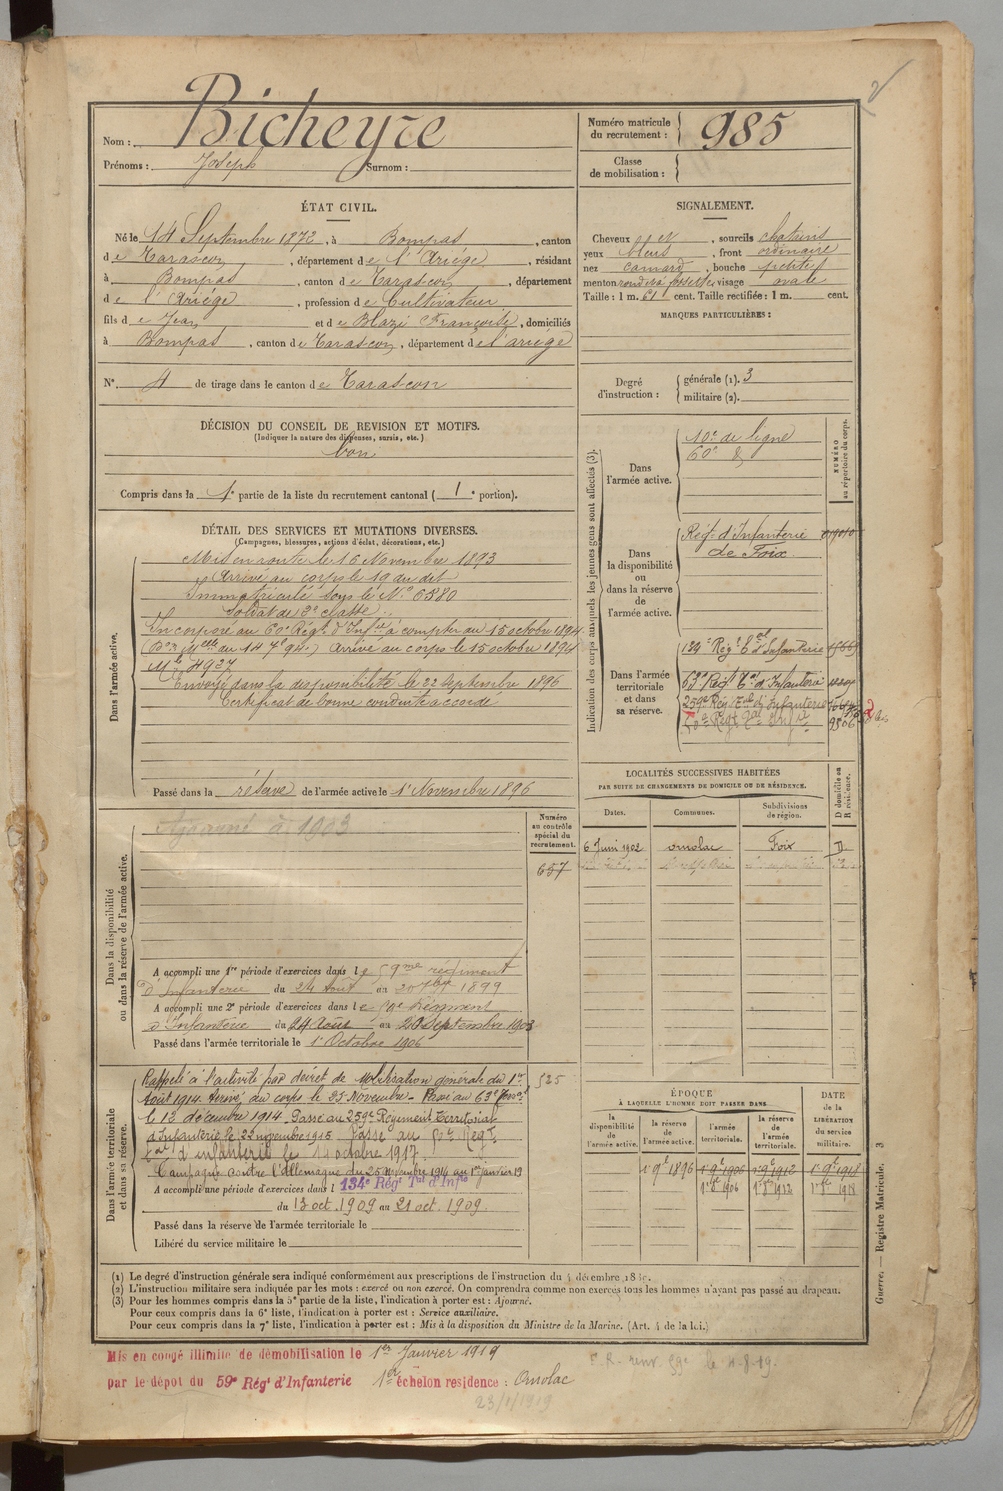 Nom : Bicheyre
Prénoms : Joseph Surnom :
Numéro matricule du recrutement : 985
Classe de mobilisation :
ÉTAT CIVIL.
Né le 14 Septembre 1872, à Bompas, canton
de Tarascon, département de l'Ariège, résidant
à Bompas, canton de Tarascon, département
de l'Ariège, profession de Cultivateur
fils de Jean et de Blazi Françoise, domiciliés
à Bompas, canton de Tarascon, département de l'ariège
N° 4 de tirage dans le canton de Tarascon
SIGNALEMENT.
Cheveux et, sourcils chatains
yeux bleus, front ordinaire
nez camard, bouche petite
menton rond à fossette, visage ovale
Taille : 1 m. 61 cent. Taille rectifiée : 1 m. cent.
MARQUES PARTICULIÈRES :
Degré d'instruction : générale (1). 3
militaire (2).
DÉCISION DU CONSEIL DE REVISION ET MOTIFS.
(Indiquer la nature des dispenses, sursis, etc.)
bon
Compris dans la 1e partie de la liste du recrutement cantonal (1e portion).
DÉTAIL DES SERVICES ET MUTATIONS DIVERSES.
(Campagnes, blessures, actions d'éclat, décorations, etc.)
Dans l'armée active.
Mis en route le 16 Novembre 1893
Arrivé au corps le 19 du dit
Immatriculé sous le N° 6380
Soldat de 2e classe
Incorporé au 60e Régt d'Infie à compter du 15 octobre 1894
Arrivé au corps le 15 octobre 1894
Mle 4937
Envoyé dans la disponibilité le 22 Septembre 1896
Certificat de bonne conduite accordé
Passé dans la réserve de l'armée active le 1er Novembre 1896
Indication des corps auxquels les jeunes gens sont affectés (3).
NUMÉRO au répertoire du corps.
Dans l'armée active.
10e de ligne
60e
Dans la disponibilité ou dans la réserve de l'armée active.
Régt d'Infanterie
de Foix
Dans l'armée territoriale et dans sa réserve.
129e Régt Tal d'Infanterie
63e Régt Tal d'Infanterie
259e Régt Tal d'Infanterie
LOCALITÉS SUCCESSIVES HABITÉES
PAR SUITE DE CHANGEMENTS DE DOMICILE OU DE RÉSIDENCE.
Dates. Communes. Subdivisions de région. D domicile ou R résidence.
6 Juin 1902 ornolac Foix D
Dans la disponibilité ou dans la réserve de l'armée active.
Ajourné à 1903
Numéro au contrôle spécial du recrutement.
657
A accompli une 1re période d'exercices dans le 59me régiment
d'Infanterie du 24 Août au 20 7bre 1899
A accompli une 2e période d'exercices dans le 59e Régiment
d'Infanterie du 24 Août au 20 Septembre 1903
Passé dans l'armée territoriale le 1er Octobre 1906
Dans l'armée territoriale et dans sa réserve.
Rappelé à l'activité par décret de Mobilisation générale du 1er 525
Août 1914. Arrivé au corps le 25 Novembre. Passé au 63e
le 12 décembre 1914. Passé au 259e Régiment Territorial
d'Infanterie le 22 novembre 1915. Passé au
d'infanterie le 14 octobre 1917.
Campagne contre l'Allemagne du 25 Novembre 1914 au 1er janvier 19
A accompli une période d'exercices dans l 134e Régt Tal d'Infie
du 13 oct. 1909 au 21 oct. 1909.
Passé dans la réserve de l'armée territoriale le
Libéré du service militaire le
ÉPOQUE
À LAQUELLE L'HOMME DOIT PASSER DANS
la disponibilité de l'armée active. la réserve de l'armée active. l'armée territoriale. la réserve de l'armée territoriale.
DATE de la LIBÉRATION du service militaire.
1er 9e 1896 1er 9e 1906 1er 9e 1912 1er 9e 1918
1er 8e 1906 1er 8e 1912 1er 8e 1918
(1) Le degré d'instruction générale sera indiqué conformément aux prescriptions de l'instruction du 4 décembre
(2) L'instruction militaire sera indiquée par les mots : exercé ou non exercé. On comprendra comme non exercés tous les hommes n'ayant pas passé au drapeau.
(3) Pour les hommes compris dans la 5e partie de la liste, l'indication à porter est : Ajourné.
Pour ceux compris dans la 6e liste, l'indication à porter est : Service auxiliaire.
Pour ceux compris dans la 7e liste, l'indication à porter est : Mis à la disposition du Ministre de la Marine. (Art. 4 de la loi.)
Guerre. — Registre Matricule. 3
Mis en congé illimité de démobilisation le 1er Janvier 1919
par le dépot du 59e Régt d'Infanterie 1er échelon residence : Ornolac
23/1/1919